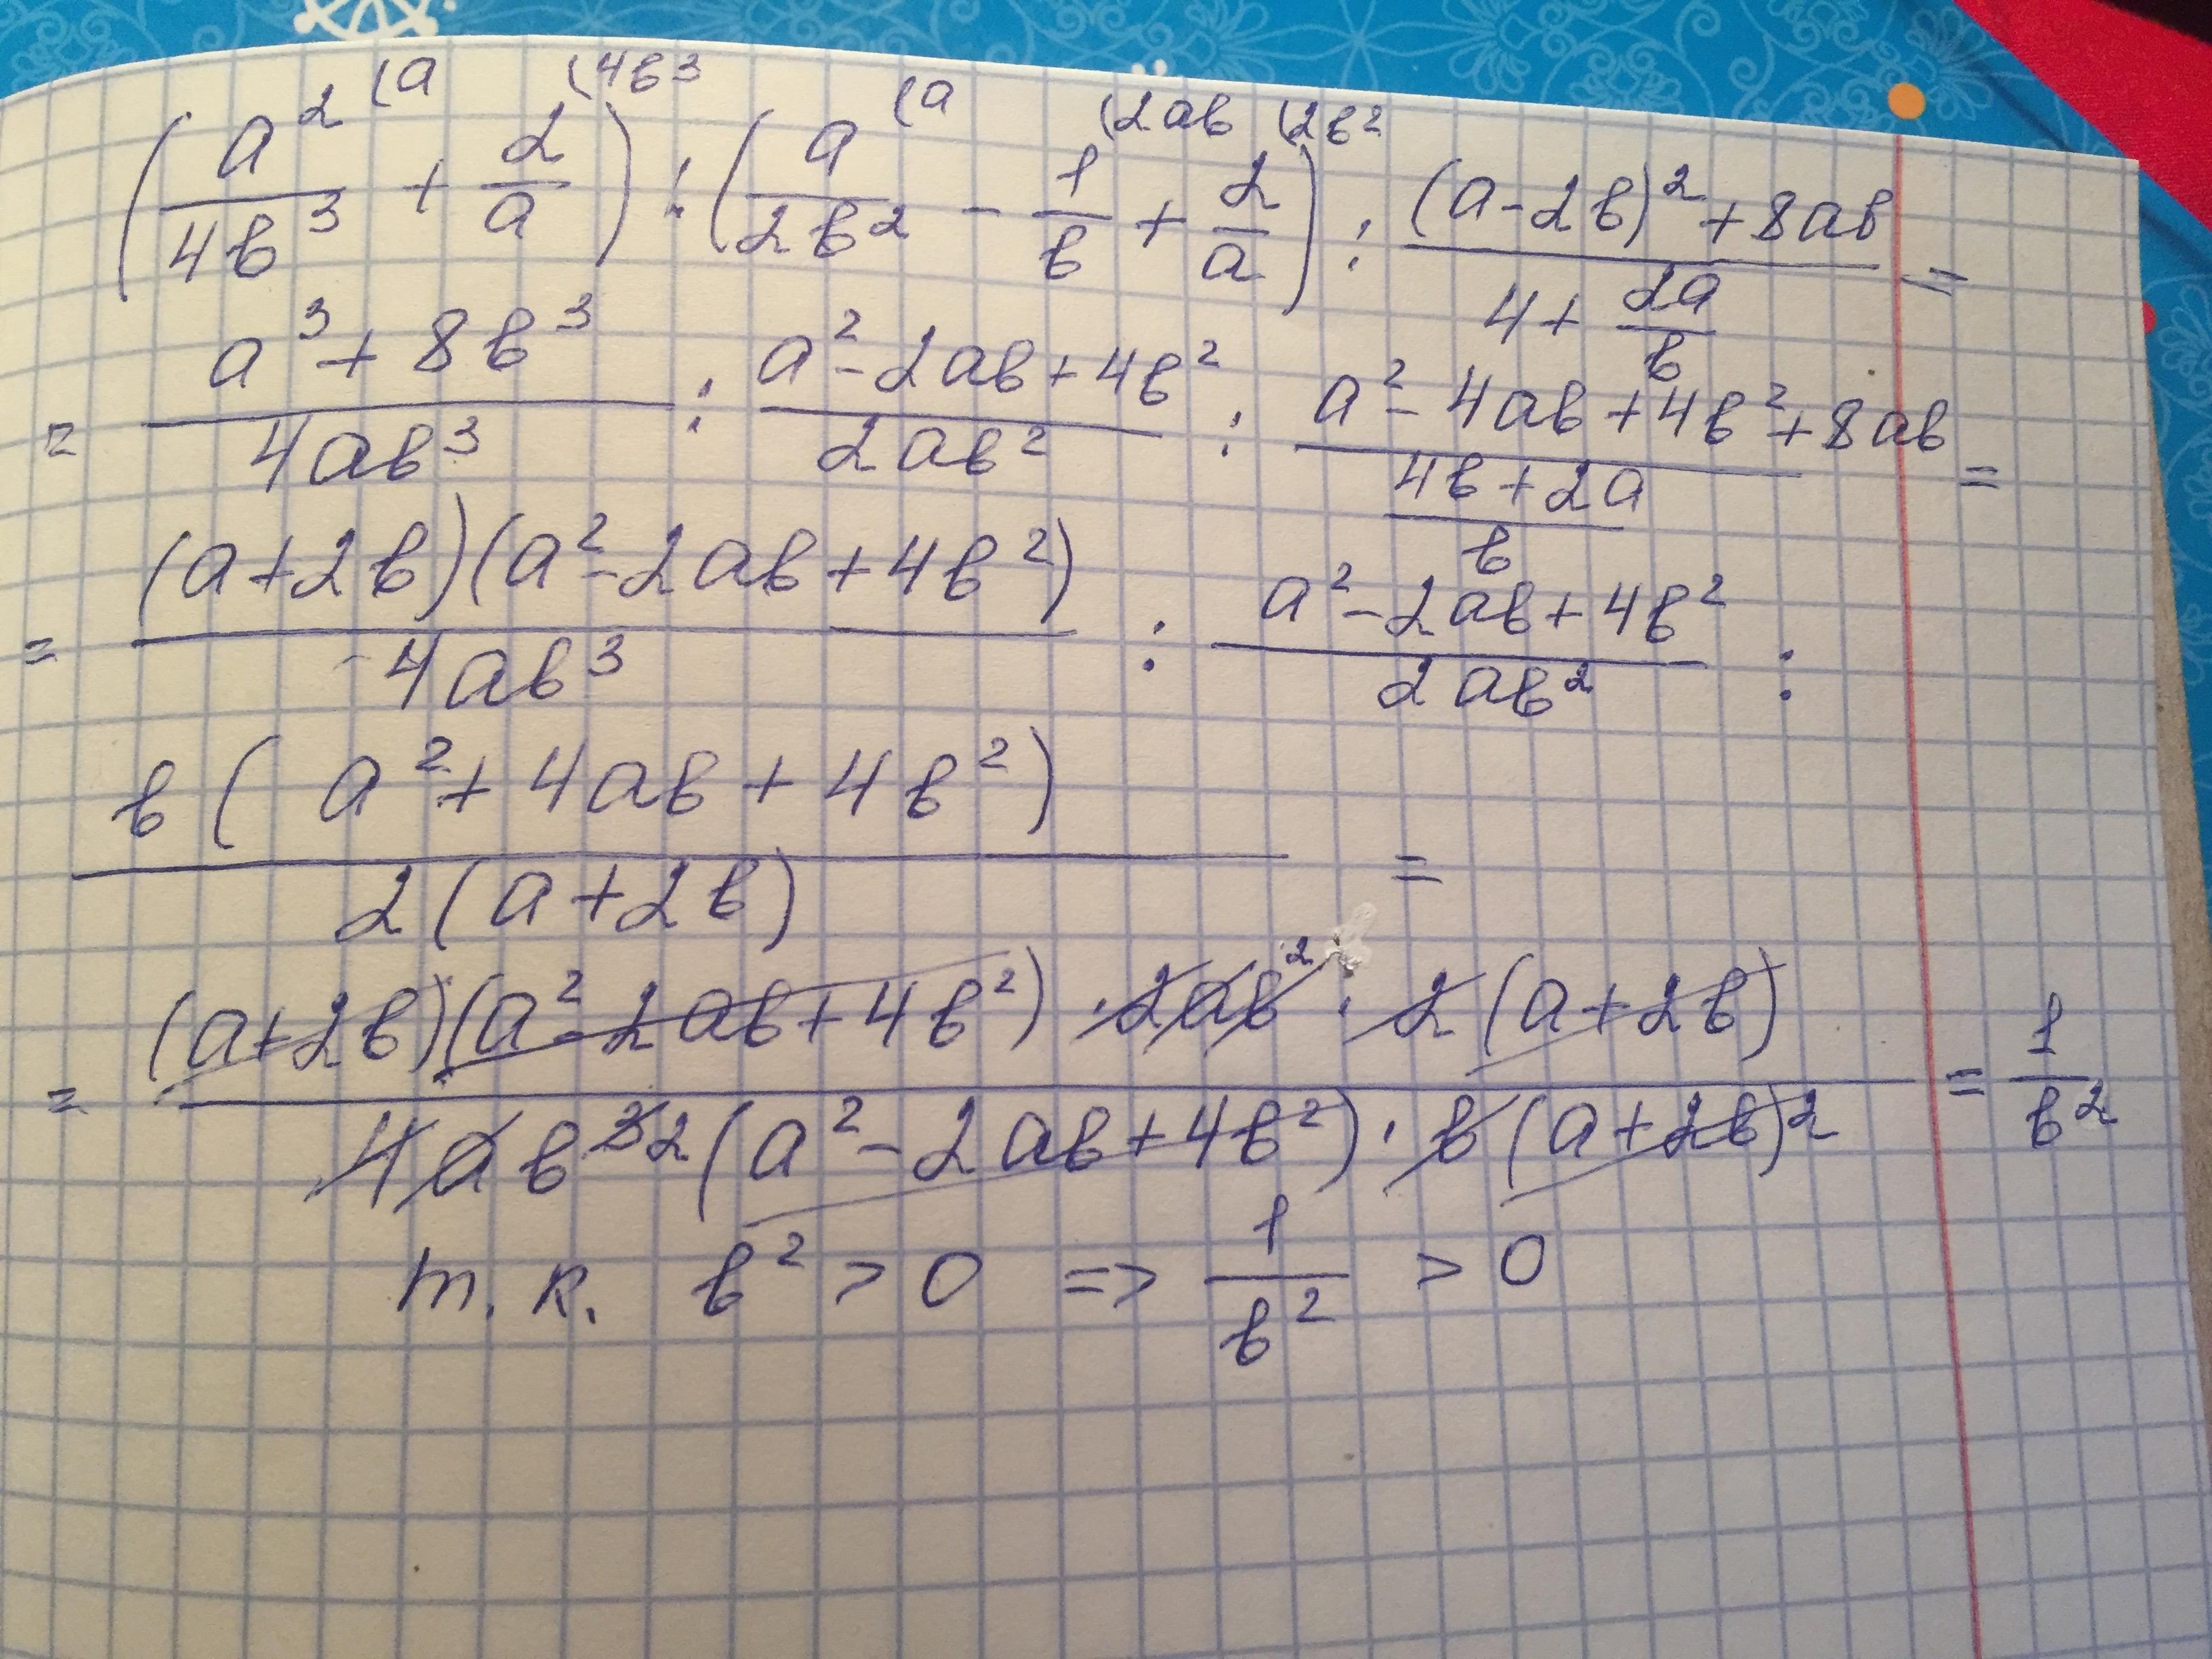 (a²/4b³ + 2/a) : (a/2b² - 1/b + 2/a) : ((a-2b)²+8ab)/(4+2a/b) =
(a (4b³ (a (2ab (2b²
= (a³+8b³)/4ab³ : (a²-2ab+4b²)/2ab² : (a²-4ab+4b²+8ab)/((4b+2a)/b) =
= (a+2b)(a²-2ab+4b²)/4ab³ : (a²-2ab+4b²)/2ab² :
b(a²+4ab+4b²)/2(a+2b) =
= (a+2b)(a²-2ab+4b²)·2ab²·2(a+2b)/4ab³²(a²-2ab+4b²)·b(a+2b)² = 1/b²
т.к. b² > 0 => 1/b² > 0